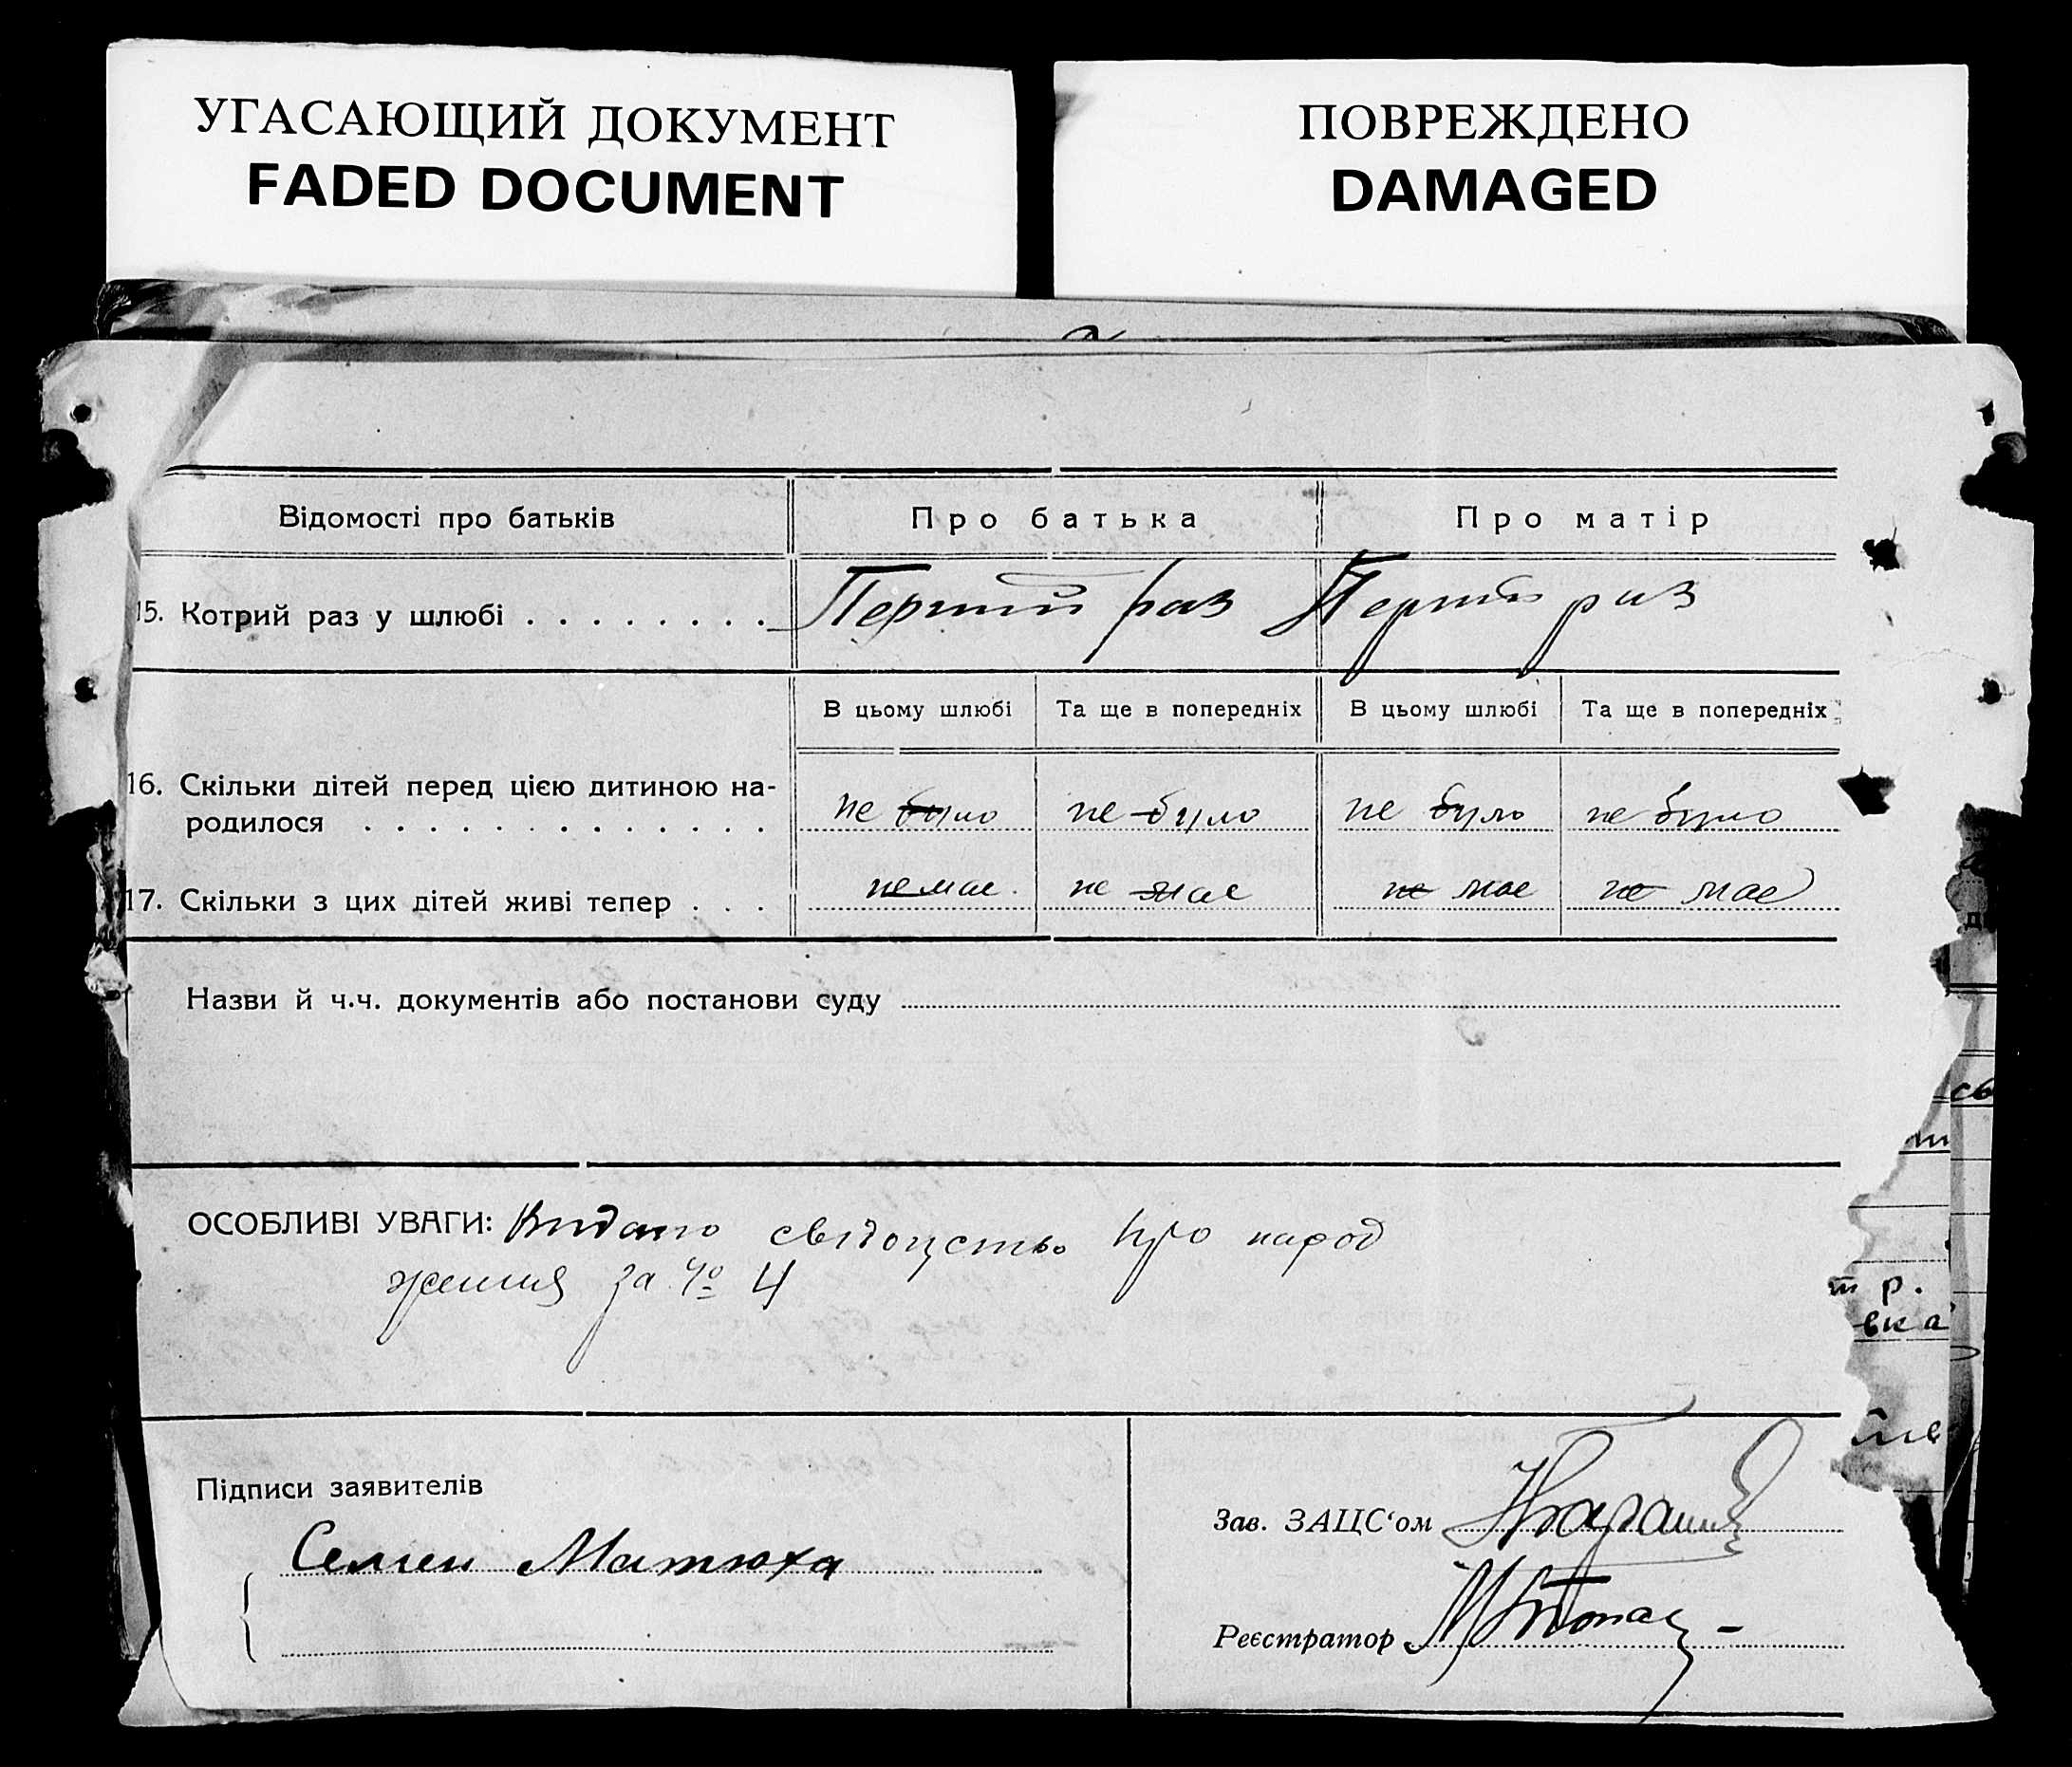 УГАСАЮЩИЙ ДОКУМЕНТ
FADED DOCUMENT
ПОВРЕЖДЕНО
DAMAGED
Відомості про батьків Про батька Про матір
15. Котрий раз у шлюбі . . . . . . . . Перший раз Перший раз
В цьому шлюбі Та ще в попередніх В цьому шлюбі Та ще в попередніх
16. Скільки дітей перед цією дитиною на-
родилося . . . . . . . . . . . . . не було не було не було не було
17. Скільки з цих дітей живі тепер . . . немає. не має не має не має
Назви й ч.ч. документів або постанови суду
ОСОБЛИВІ УВАГИ: Видано свідоцство про народ
ження за № 4
Підписи заявителів
Семен Матюха
Зав. ЗАЦС‘ом
Реєстратор
т р.
вка